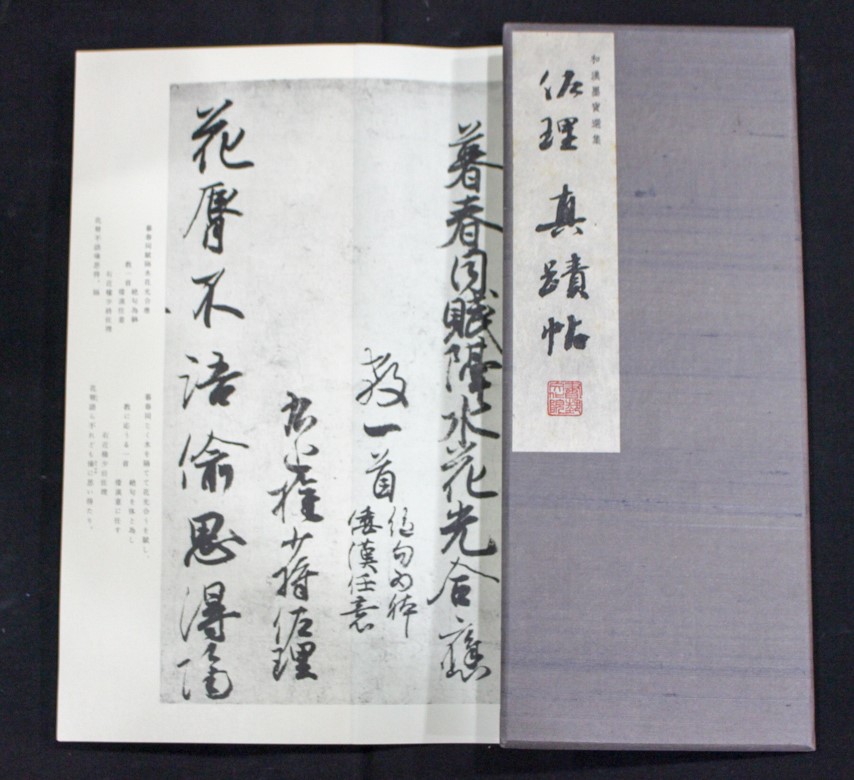 和漢墨寶選集
佐理 真蹟帖
暮春同賦隔水花光合應
教一首 絶句為躰
倭漢任意
右近権少将佐理
花脣不語偸思得隔
暮春同賦隔水花光合應
教一首 絶句為躰
倭漢任意
右近權少將佐理
花脣不語偸思得。隔
暮春同じく水を隔てて花光合うを賦し、
教に応うる一首 絶句を体と為し
倭漢意に任す
右近権少将佐理
花脣語らざれども偸に思い得たり。